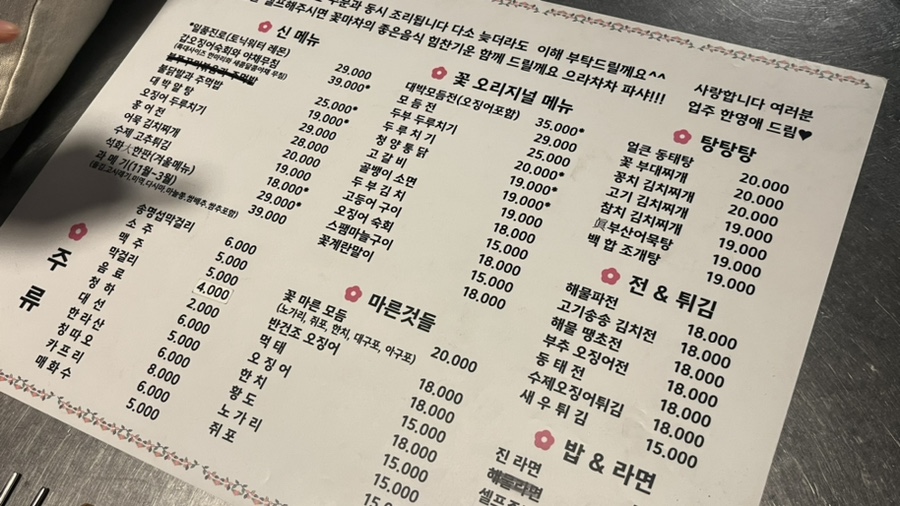 주문과 동시 조리됩니다 다소 늦더라도 이해 부탁드릴께요^^
셀프해주시면 꽃마차의 좋은음식 힘찬기운 함께 드릴께요 으라차차 파샤!!!
사랑합니다 여러분
업주 한영애 드림♥
신 메뉴
*일품진로(토닉워터 레몬)
갑오징어숙회와 야채무침 29.000
(특대사이즈 한마리와 새콤달콤야채 무침) 39.000*
불닭발과 주먹밥 25.000*
대 박 알 탕 19.000*
오징어 두루치기 29.000
홍 어 전 28.000
어묵 김치찌개 20.000
수제 고추튀김 19.000
석화人한판(겨울메뉴) 18.000*
과 메 기(11월~3월) 29.000*
39.000
꽃 오리지널 메뉴
대박모듬전(오징어포함) 35.000*
모 듬 전 29.000
두부 두루치기 25.000
두 루 치 기 20.000*
청 양 통 닭 19.000*
고 갈 비 19.000*
골뱅이 소면 19.000
두 부 김 치 18.000
고등어 구이 15.000
오징어 숙회 18.000
스팸마늘구이 15.000
꽃계란말이 18.000
탕탕탕
얼큰 동태탕 20.000
꽃 부대찌개 20.000
꽁치 김치찌개 20.000
고기 김치찌개 19.000
참치 김치찌개 19.000
眞부산어묵탕 19.000
백 합 조개탕 19.000
주류
송명섭막걸리 6.000
소 주 5.000
맥 주 5.000
막걸리 4.000
음 료 2.000
청 하 6.000
대 선 5.000
한라산 6.000
칭따오 8.000
카프리 6.000
매화수 5.000
마른것들
꽃 마른 모듬
(노가리, 쥐포, 한치, 대구포, 아구포) 20.000
반건조 오징어 18.000
먹 태 18.000
오 징 어 15.000
한 치 18.000
황 도 15.000
노 가 리 15.000
쥐 포
전 & 튀김
해물파전 18.000
고기송송 김치전 18.000
해물 땡초전 18.000
부추 오징어전 18.000
동 태 전 18.000
수제오징어튀김 18.000
새 우 튀 김 15.000
밥 & 라면
진 라면
해물라면